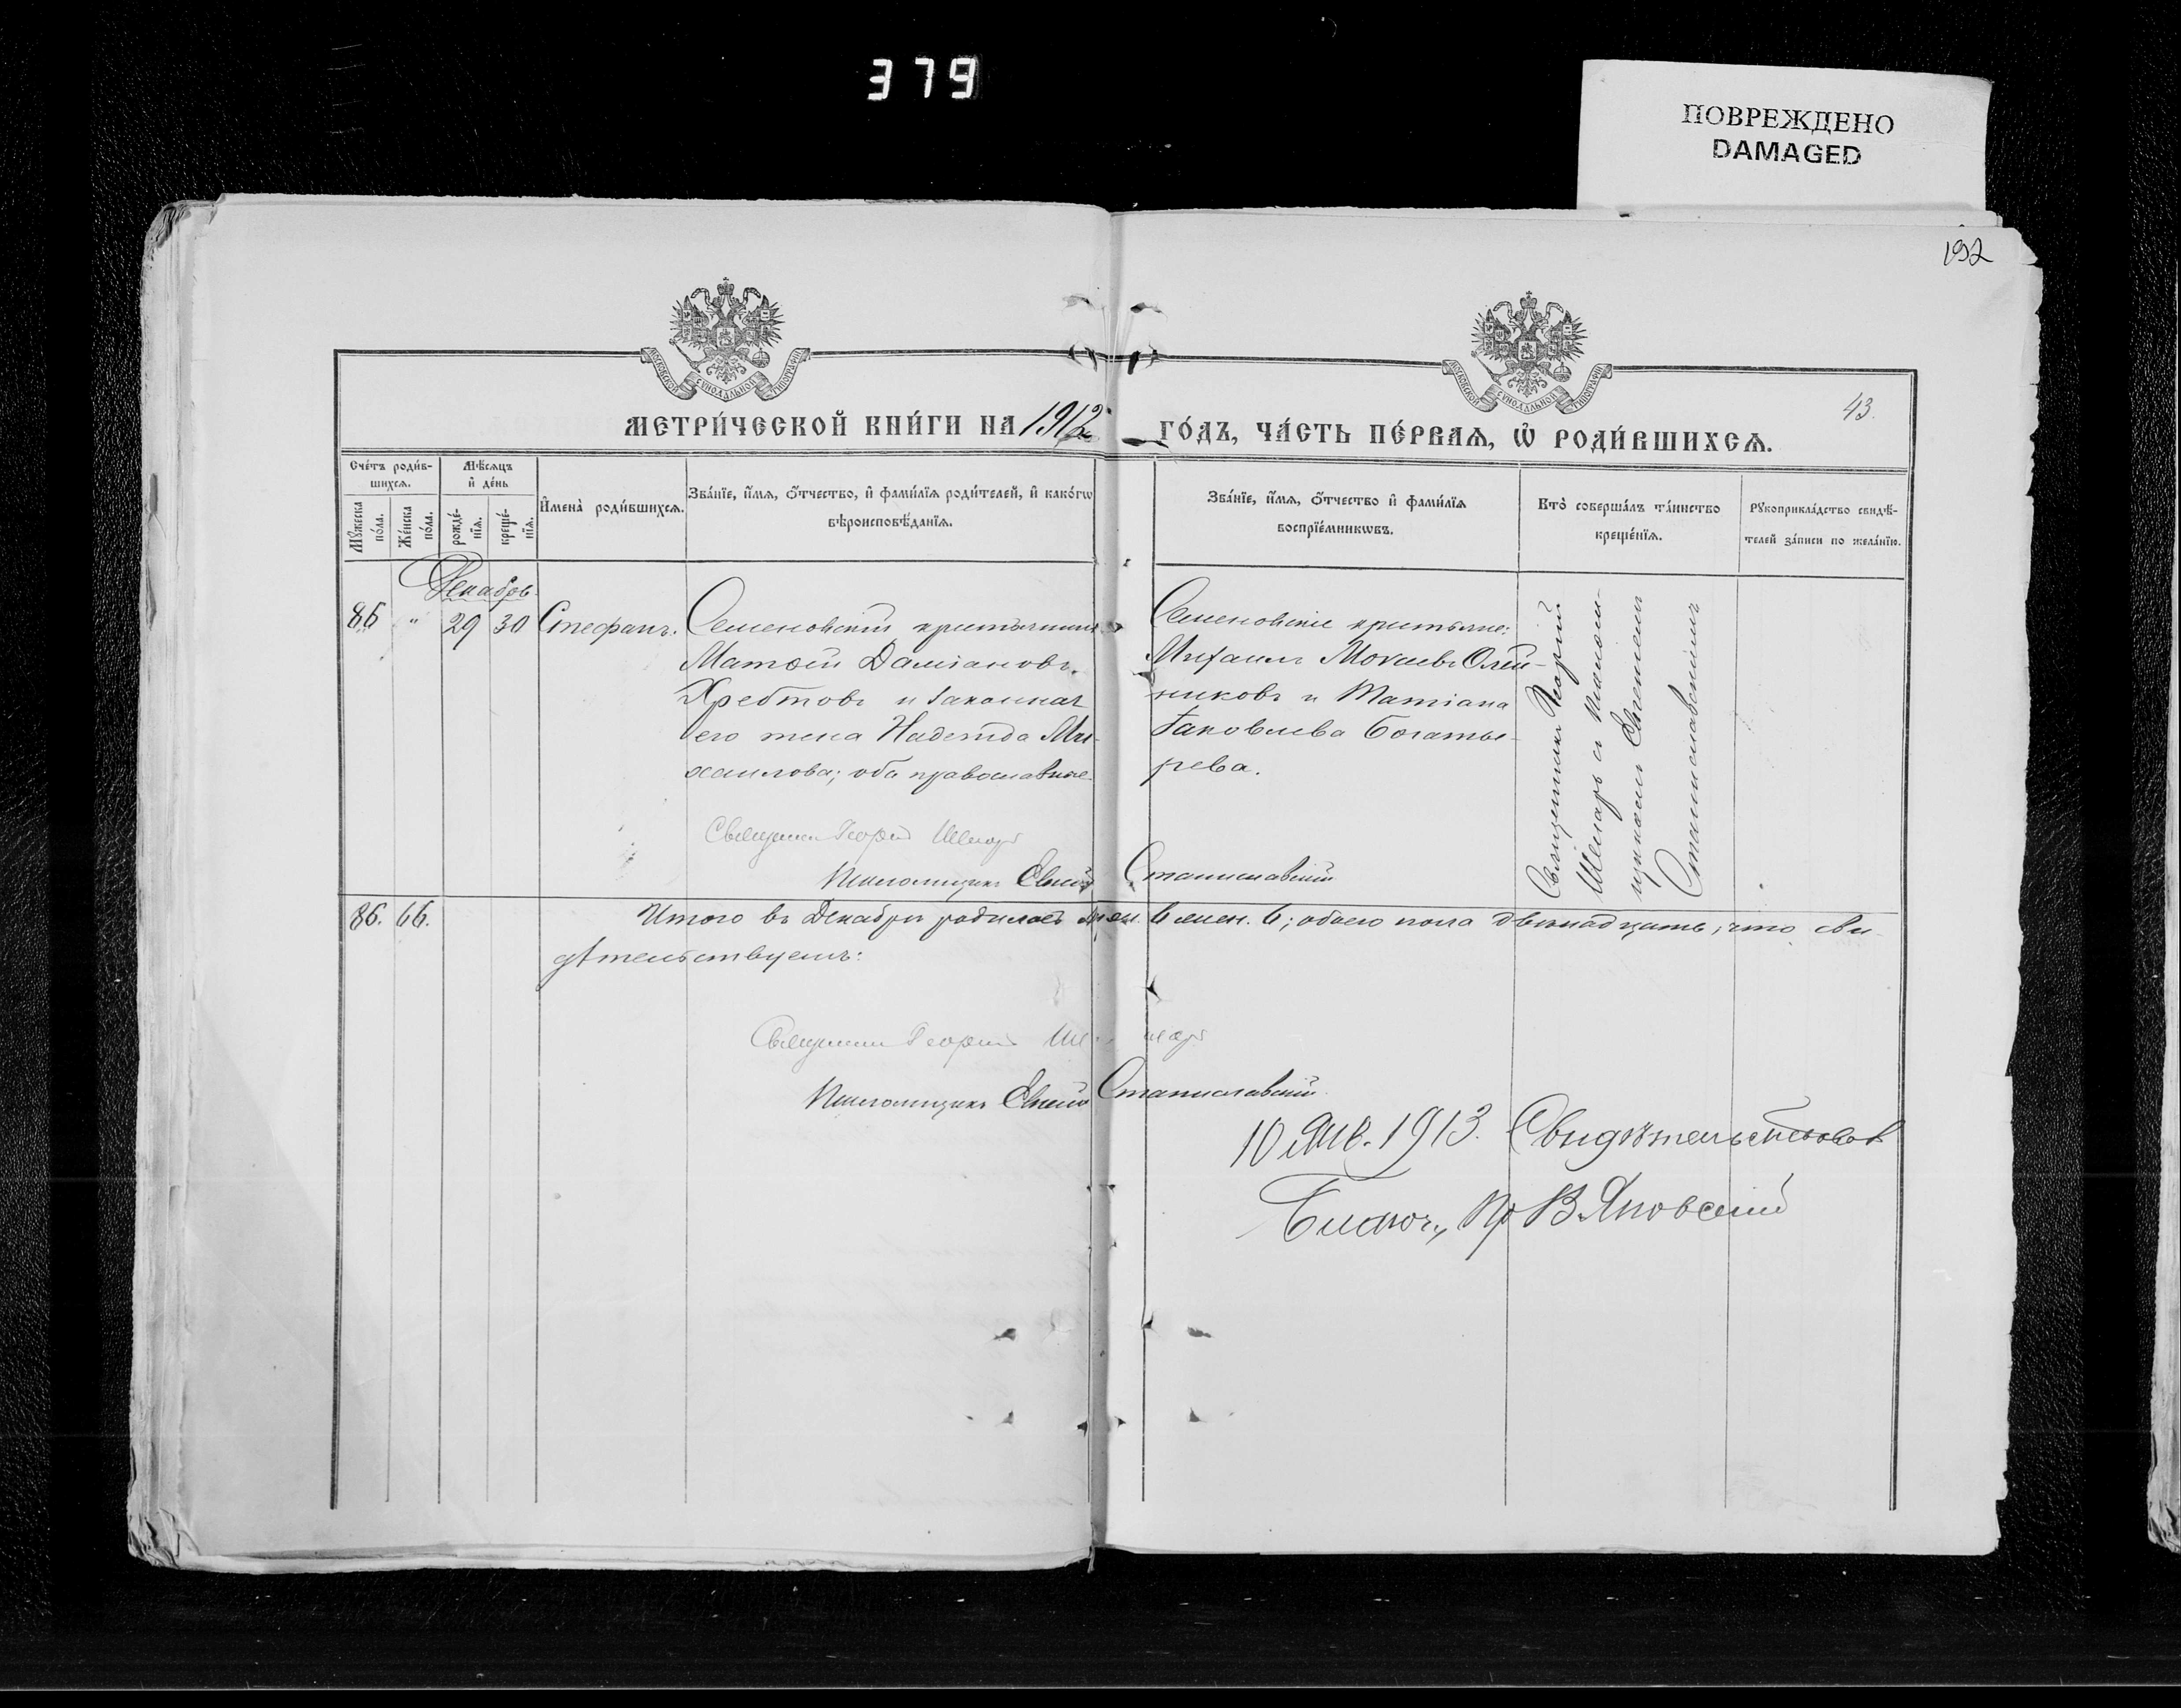 379
ПОВРЕЖДЕНО
DAMAGED
192
МОСКОВСКОЙ СУНОДАЛЬНОЙ ТИПОГРАФІИ
МОСКОВСКОЙ СУНОДАЛЬНОЙ ТИПОГРАФІИ
43.
МЕТРИ́ЧЕСКОЙ КНИ́ГИ НА 1912 ГО́ДЪ, ЧА́СТЬ ПЕ́РВАѦ, Ѽ РОДИ́ВШИХСѦ.
Сче́тъ роди́в-
шихсѧ.
Мꙋ́жеска
по́ла.
Же́нска
по́ла.
Мѣ́сѧцъ
и҆ де́нь
рожде́-
нїѧ.
креще́-
нїѧ.
И҆мена̀ роди́вшихсѧ.
Зва́нїе, и҆́мѧ, ѻ҆́тчество, и҆ фами́лїѧ роди́телей, и҆ како́гѡ
вѣроисповѣ́данїѧ.
Зва́нїе, и҆́мѧ, ѻ҆́тчество и҆ фами́лїѧ
воспрїе́мникѡвъ.
Кто̀ соверша́лъ та́инство
креще́нїѧ.
Рꙋкоприкла́дство свидѣ́-
телей за́писи по жела́нїю.
Декабрь
86 " 29 30 Стефанъ.
Семеновскій крестьянинъ
Матѳей Даміановъ
Хребтовъ и законная
его жена Надежда Ми-
хаилова; оба православные
Семеновскіе крестьяне:
Михаилъ Мокіевъ Олей-
никовъ и Татіана
Іаковлева Богаты-
рева.
Священникъ Георгій
Шеларь съ псалом-
щикомъ Евгеніемъ
Станиславскимъ
Священникъ Георгій
Псаломщикъ Евгеній Станиславскій
86. 66. Итого въ Декабрѣ родилось муж. 6 жен. 6; обоего пола двѣнадцать; что сви-
дѣтельствуемъ:
Священникъ Георгій
Псаломщикъ Евгеній Станиславскій
10 Янв. 1913. Свидѣтельствовалъ
Благоч., В. Яновскій